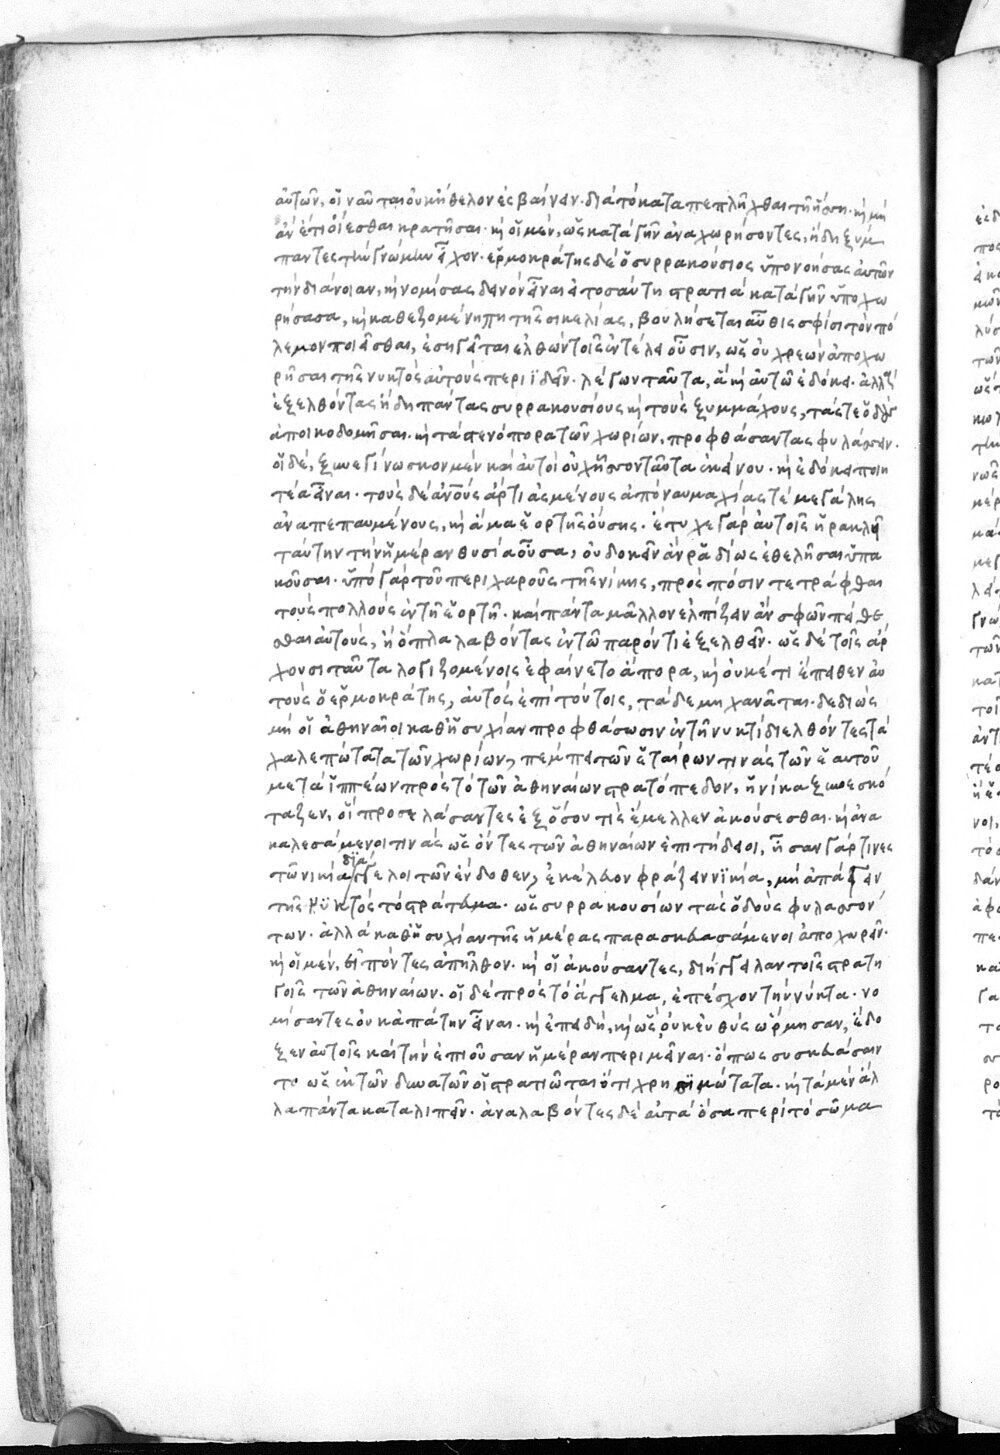 αὐτῶν, οἱ ναῦται οὐκ ἤθελον ἐσβαίνειν· διὰ τὸ καταπεπλῆχθαι τῇ ἥσση· καὶ μὴ
ἂν ἔτι οἴεσθαι κρατῆσαι· καὶ οἱ μὲν, ὡς κατὰ γῆν ἀναχωρήσοντες, ἤδη ξύμ
παντες τὴν γνώμην εἶχον· ἑρμοκράτης δὲ ὁ συρρακούσιος ὑπονοήσας αὐτῶν
τὴν διάνοιαν, καὶ νομίσας δεινὸν εἶναι εἰ τοσαύτη στρατιὰ κατὰ γῆν ὑποχω
ρήσασα, καὶ καθεζομένη πη τῆς σικελίας, βουλήσεται αὖθις σφίσι τὸν πό
λεμον ποιεῖσθαι, ἐσηγεῖται ἐλθὼν τοῖς ἐν τέλει οὖσιν, ὡς οὐ χρεὼν ἀποχω
ρῆσαι τῆς νυκτὸς αὐτοὺς περιϊδεῖν· λέγων ταῦτα, ἃ καὶ αὐτῷ ἐδόκει· ἀλλὰ
ἐξελθόντας ἤδη πάντας συρρακουσίους καὶ τοὺς ξυμμάχους, τάς τε ὁδοὺς
ἀποικοδομῆσαι· καὶ τὰ στενόπορα τῶν χωρίων, προφθάσαντας φυλάσσειν·
οἱ δὲ, ξυνεγίνωσκον μὲν καὶ αὐτοὶ οὐχ ἧσσον ταῦτα ἐκείνου· καὶ ἐδόκει ποιη
τέα εἶναι· τοὺς δὲ ἀνους ἄρτι ἀσμένους ἀπὸ ναυμαχίας τε μεγάλης
ἀναπεπαυμένους, καὶ ἅμα ἑορτῆς οὔσης· ἔτυχε γὰρ αὐτοῖς ἡρακλεῖ
ταύτην τὴν ἡμέραν θυσία οὖσα, οὐ δοκεῖν ἂν ῥαδίως ἐθελῆσαι ὑπα
κοῦσαι· ὑπὸ γὰρ τοῦ περιχαροῦς τῆς νίκης, πρὸς πόσιν τετράφθαι
τοὺς πολλοὺς ἐν τῇ ἑορτῇ· καὶ πάντα μᾶλλον ἐλπίζειν ἂν σφῶν πείθε
σθαι αὐτοὺς, ἢ ὅπλα λαβόντας ἐν τῷ παρόντι ἐξελθεῖν· ὡς δὲ τοῖς ἄρ
χουσι ταῦτα λογιζομένοις ἐφαίνετο ἄπορα, καὶ οὐκέτι ἔπειθεν αὐ
τοὺς ὁ ἑρμοκράτης, αὐτὸς ἐπὶ τούτοις, τάδε μηχανᾶται· δεδιὼς
μὴ οἱ ἀθηναῖοι καθ' ἡσυχίαν προφθάσωσιν ἐν τῇ νυκτὶ διελθόντες τὰ
χαλεπώτατα τῶν χωρίων, πέμπει τῶν ἑταίρων τινὰς τῶν ἑαυτοῦ
μετὰ ἱππέων πρὸς τὸ τῶν ἀθηναίων στρατόπεδον, ἡνίκα ξυνεσκό
ταζεν, οἳ προσελάσαντες ἐξ ὅσου τις ἔμελλεν ἀκούσεσθαι· καὶ ἀνα
καλεσάμενοι τινὰς ὡς ὄντες τῶν ἀθηναίων ἐπιτήδειοι, ἦσαν γάρ τινες
τῷ νικίᾳ διάγγελοι τῶν ἔνδοθεν, ἐκέλευον φράζειν νικίᾳ, μὴ ἀπάγειν
τῆς νυκτὸς τὸ στράτευμα· ὡς συρρακουσίων τὰς ὁδοὺς φυλασσόν
των· ἀλλὰ καθ' ἡσυχίαν τῆς ἡμέρας παρασκευασάμενοι ἀποχωρεῖν·
καὶ οἱ μὲν, εἰπόντες ἀπῆλθον· καὶ οἱ ἀκούσαντες, διήγγειλαν τοῖς στρατη
γοῖς τῶν ἀθηναίων· οἱ δὲ πρὸς τὸ ἄγγελμα, ἐπέσχον τὴν νύκτα· νο
μίσαντες οὐκ ἀπάτην εἶναι· καὶ ἐπειδὴ, καὶ ὣς οὐκ εὐθὺς ὥρμησαν, ἔδο
ξεν αὐτοῖς καὶ τὴν ἐπιοῦσαν ἡμέραν περιμεῖναι· ὅπως συσκευάσαιν
το ὡς ἐκ τῶν δυνατῶν οἱ στρατιῶται ὅτι χρησιμώτατα· καὶ τὰ μὲν ἄλ
λα πάντα καταλιπεῖν· ἀναλαβόντες δὲ αὐτὰ ὅσα περὶ τὸ σῶμα